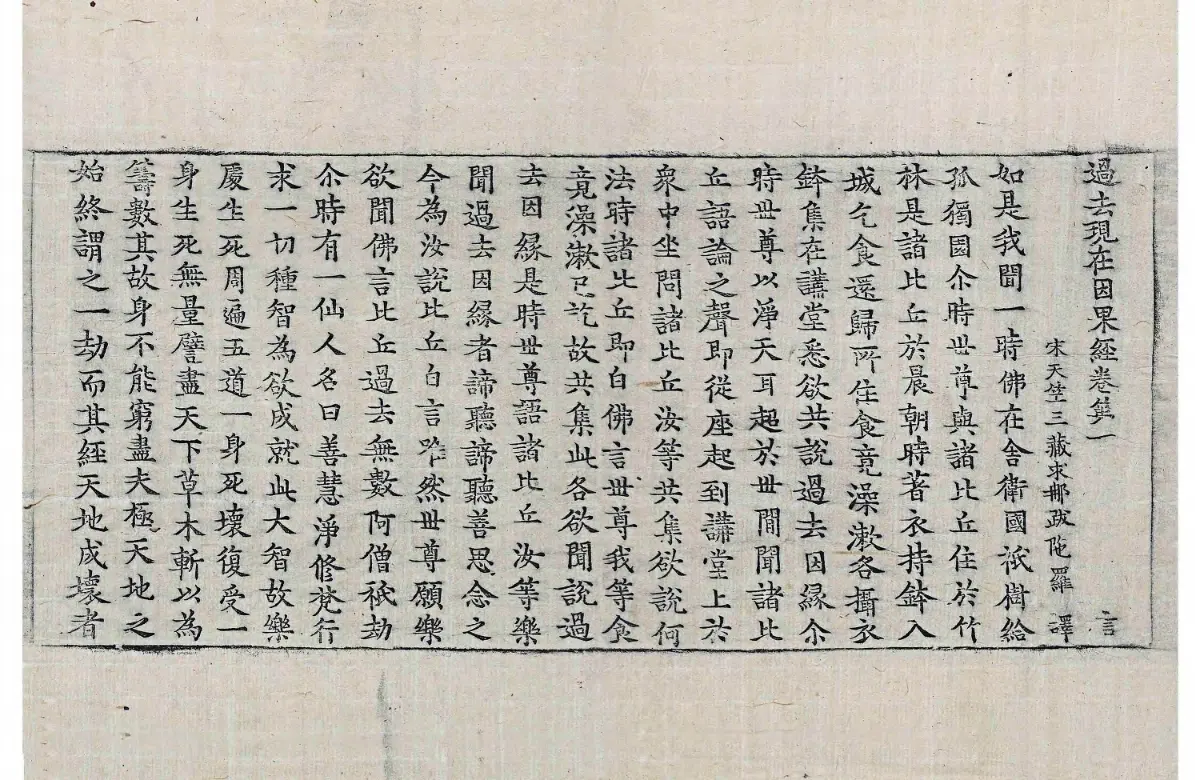 過去現在因果經卷第一 言
宋天竺三藏求那跋陁羅 譯
如是我聞一時佛在舍衛國祇樹給
孤獨園尒時世尊與諸比丘住於竹
林是諸比丘於晨朝時著衣持鉢入
城乞食還歸所住食竟澡漱各攝衣
鉢集在講堂悉欲共說過去因緣尒
時世尊以淨天耳起於世間聞諸比
丘語論之聲即從座起到講堂上於
衆中坐問諸比丘汝等共集欲說何
法時諸比丘即白佛言世尊我等食
竟澡漱已訖故共集此各欲聞說過
去因緣是時世尊語諸比丘汝等樂
聞過去因緣者諦聽諦聽善思念之
今為汝說比丘白言唯然世尊願樂
欲聞佛言比丘過去無數阿僧祇劫
尒時有一仙人名曰善慧淨修梵行
求一切種智為欲成就此大智故樂
處生死周遍五道一身死壞復受一
身生死無量譬盡天下草木斬以為
籌數其故身不能窮盡夫極天地之
始終謂之一劫而其經天地成壞者